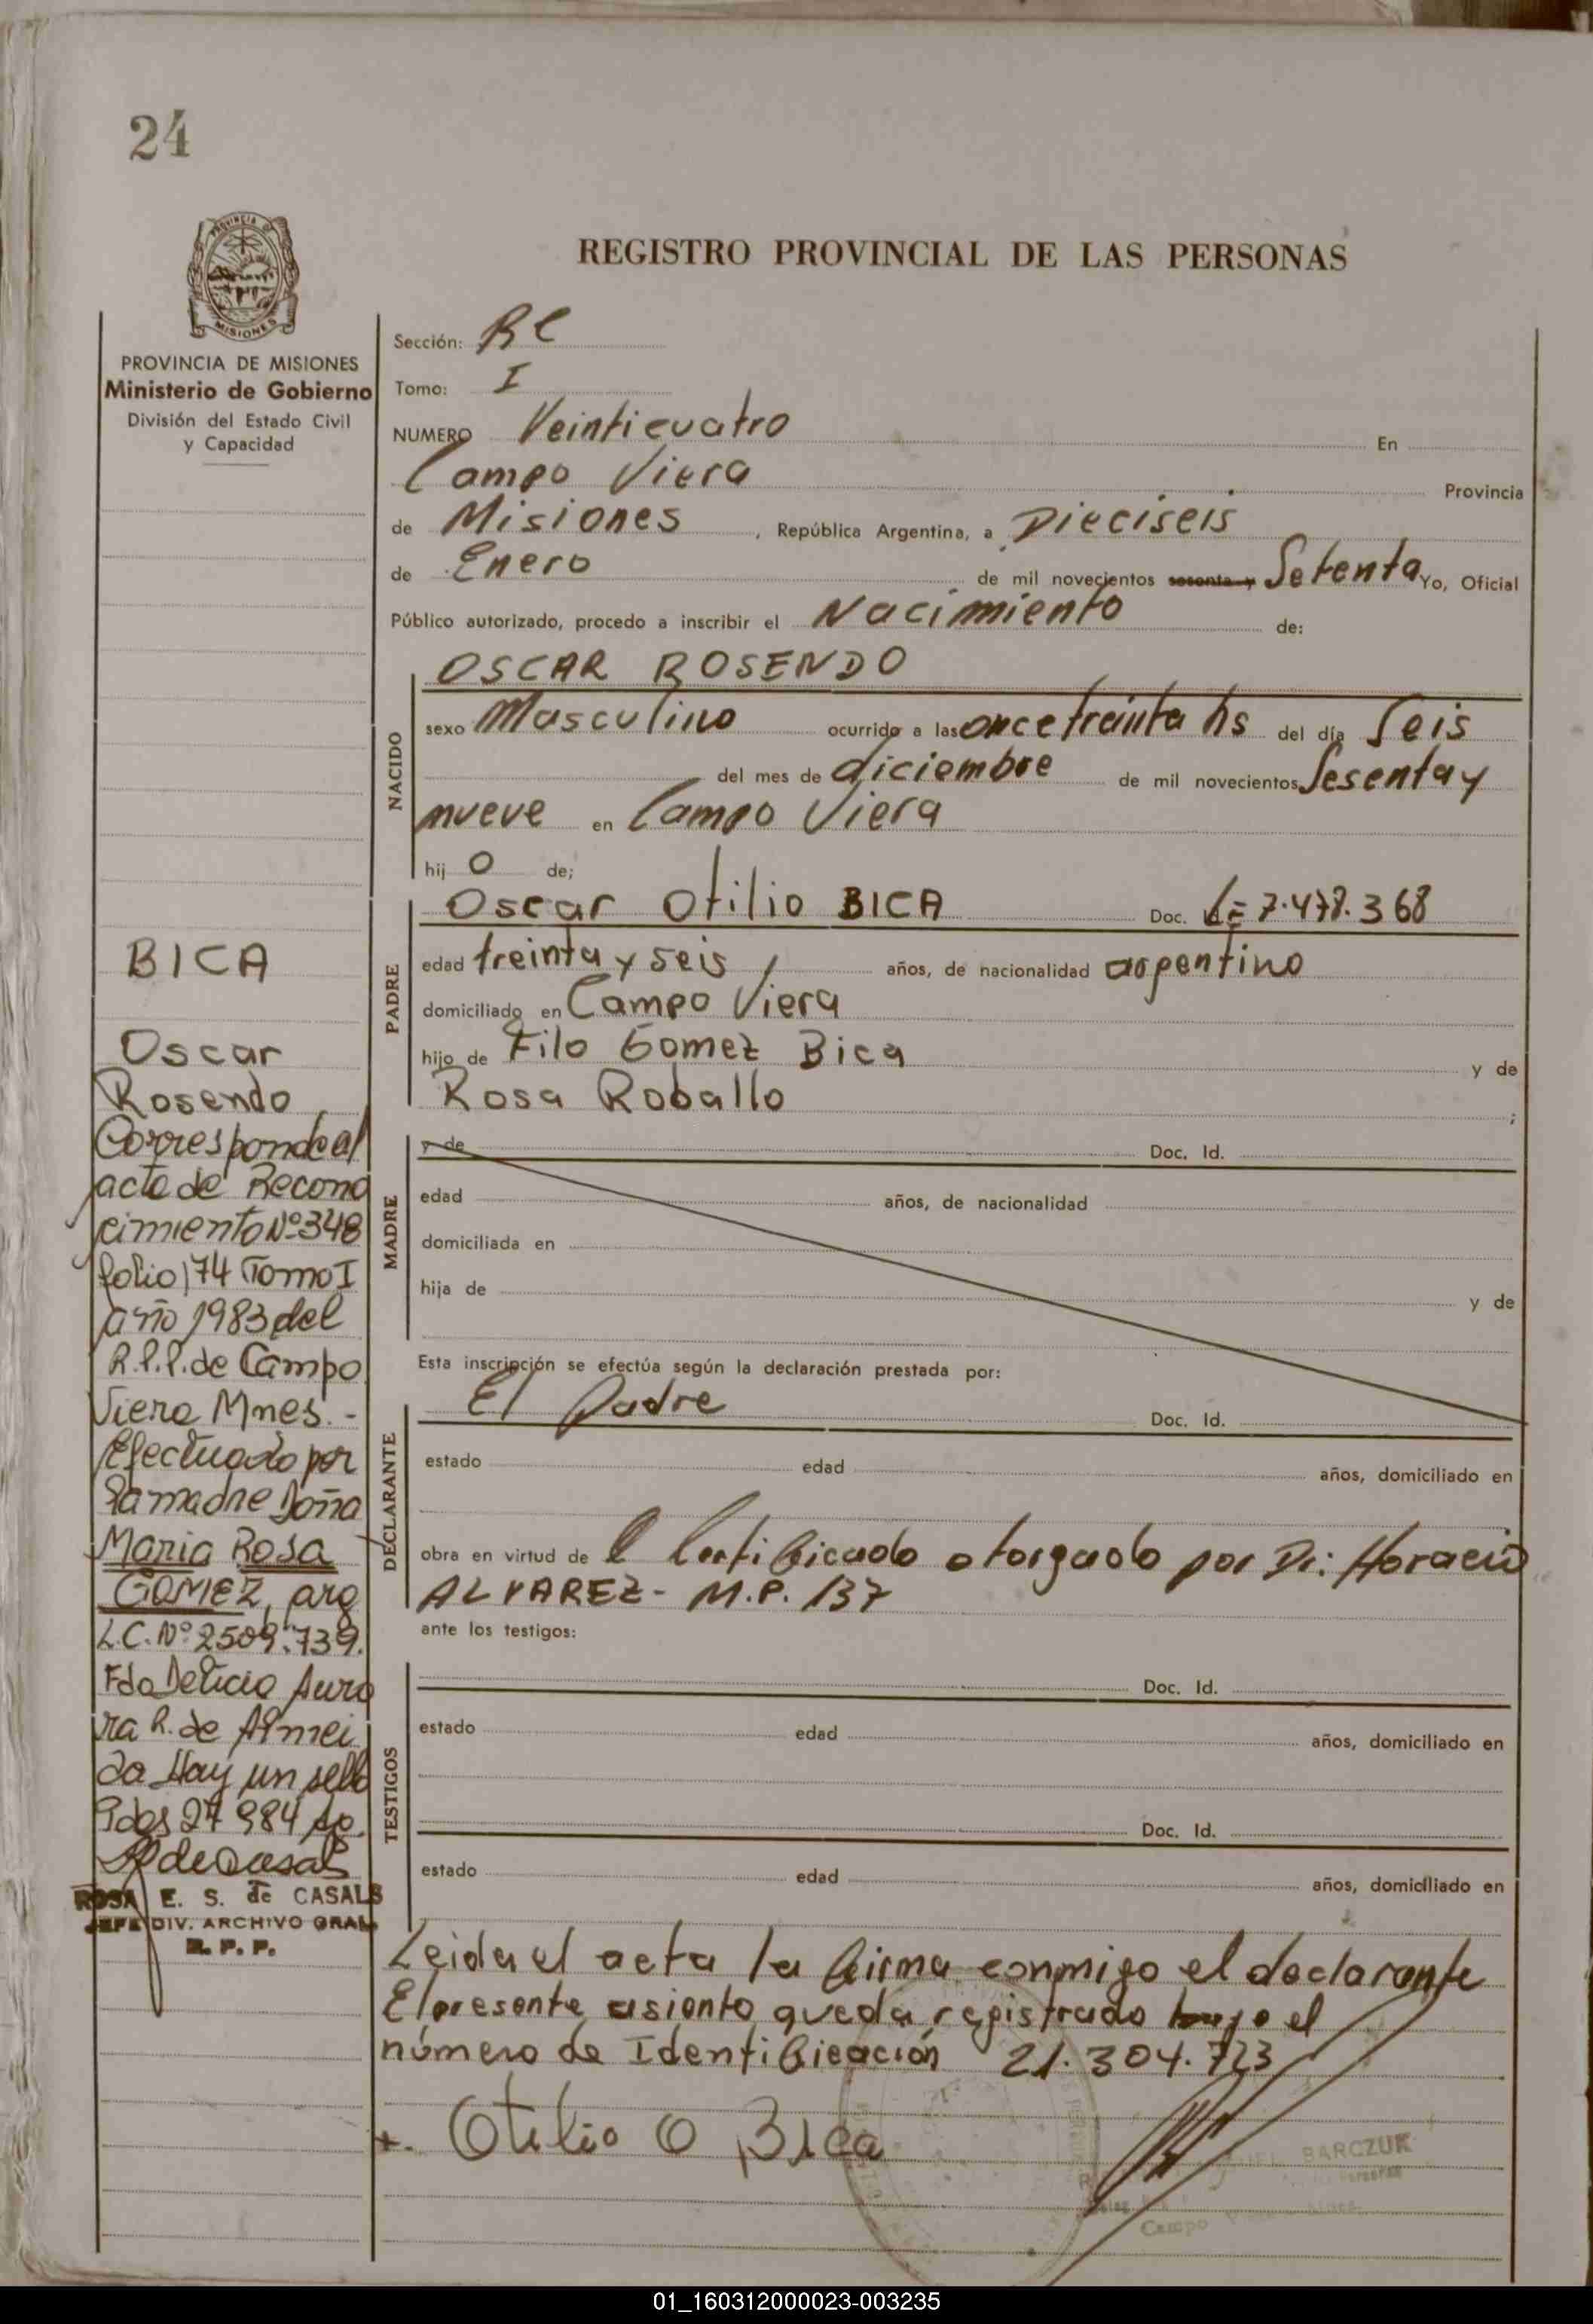 24
PROVINCIA DE
MISIONES
PROVINCIA DE MISIONES
Ministerio de Gobierno
División del Estado Civil
y Capacidad
BICA
Oscar
Rosendo
Corresponde al
acta de Recono
cimiento Nº 348
folio 174 Tomo I
año 1983 del
R.P.P. de Campo
Viera Mnes. -
Efectuado por
la madre Doña
Maria Rosa
GOMEZ, arg
L.C. Nº 2509.739.
Fdo Delicia Auro
ra R. de Almei
da Hay un sello
Pdas 27 984
ROSA E. S. de CASALS
JEFE DIV. ARCHIVO GRAL
R. P. P.
REGISTRO PROVINCIAL DE LAS PERSONAS
Sección: RC
Tomo: I
NUMERO Veinticuatro En
Campo Viera Provincia
de Misiones, República Argentina, a Dieciseis
de Enero de mil novecientos sesenta y Setenta Yo, Oficial
Público autorizado, procedo a inscribir el Nacimiento de:
NACIDO
OSCAR ROSENDO
sexo Masculino ocurrido a las once treinta hs del día Seis
del mes de diciembre de mil novecientos Sesenta y
nueve en Campo Viera
hij o de;
PADRE
Oscar Otilio BICA Doc. LE 7.478.368
edad treinta y seis años, de nacionalidad argentino
domiciliado en Campo Viera
hijo de Filo Gomez Bica y de
Rosa Roballo ;
MADRE
y de Doc. Id.
edad años, de nacionalidad
domiciliada en
hija de y de
Esta inscripción se efectúa según la declaración prestada por:
DECLARANTE
El Padre Doc. Id.
estado edad años, domiciliado en
obra en virtud de l Certificado otorgado por Dr: Horacio
ALVAREZ - M.P. 137
ante los testigos:
TESTIGOS
Doc. Id.
estado edad años, domiciliado en
Doc. Id.
estado edad años, domiciliado en
Leida el acta la firma conmigo el declarante
El presente asiento queda registrado bajo el
número de Identificación 21.304.723
Otilio O Bica
BARCZUK
Campo
01_160312000023-003235